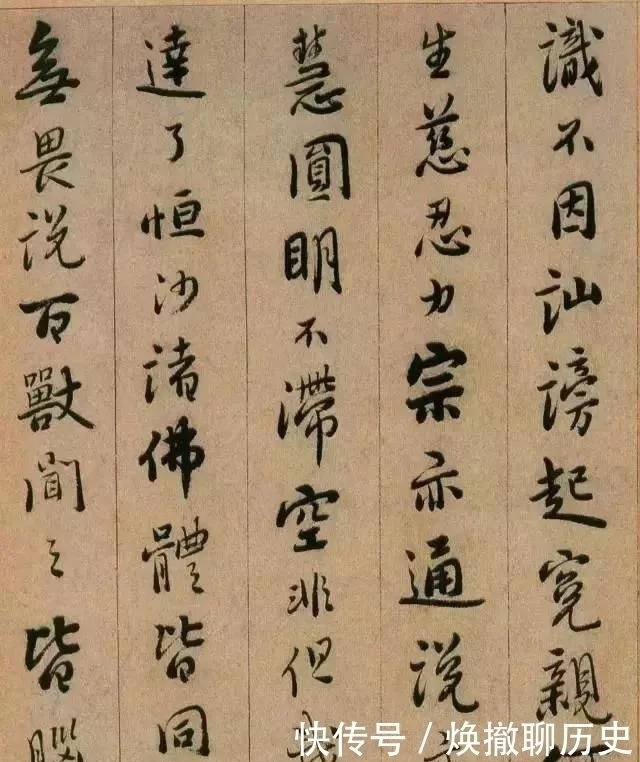 識不因訕謗起寃親
生慈忍力宗亦通説
慧圓明不滯空非但
達了恒沙諸佛體皆同
無畏説百獸聞之皆腦
快传号 / 焕撤聊历史